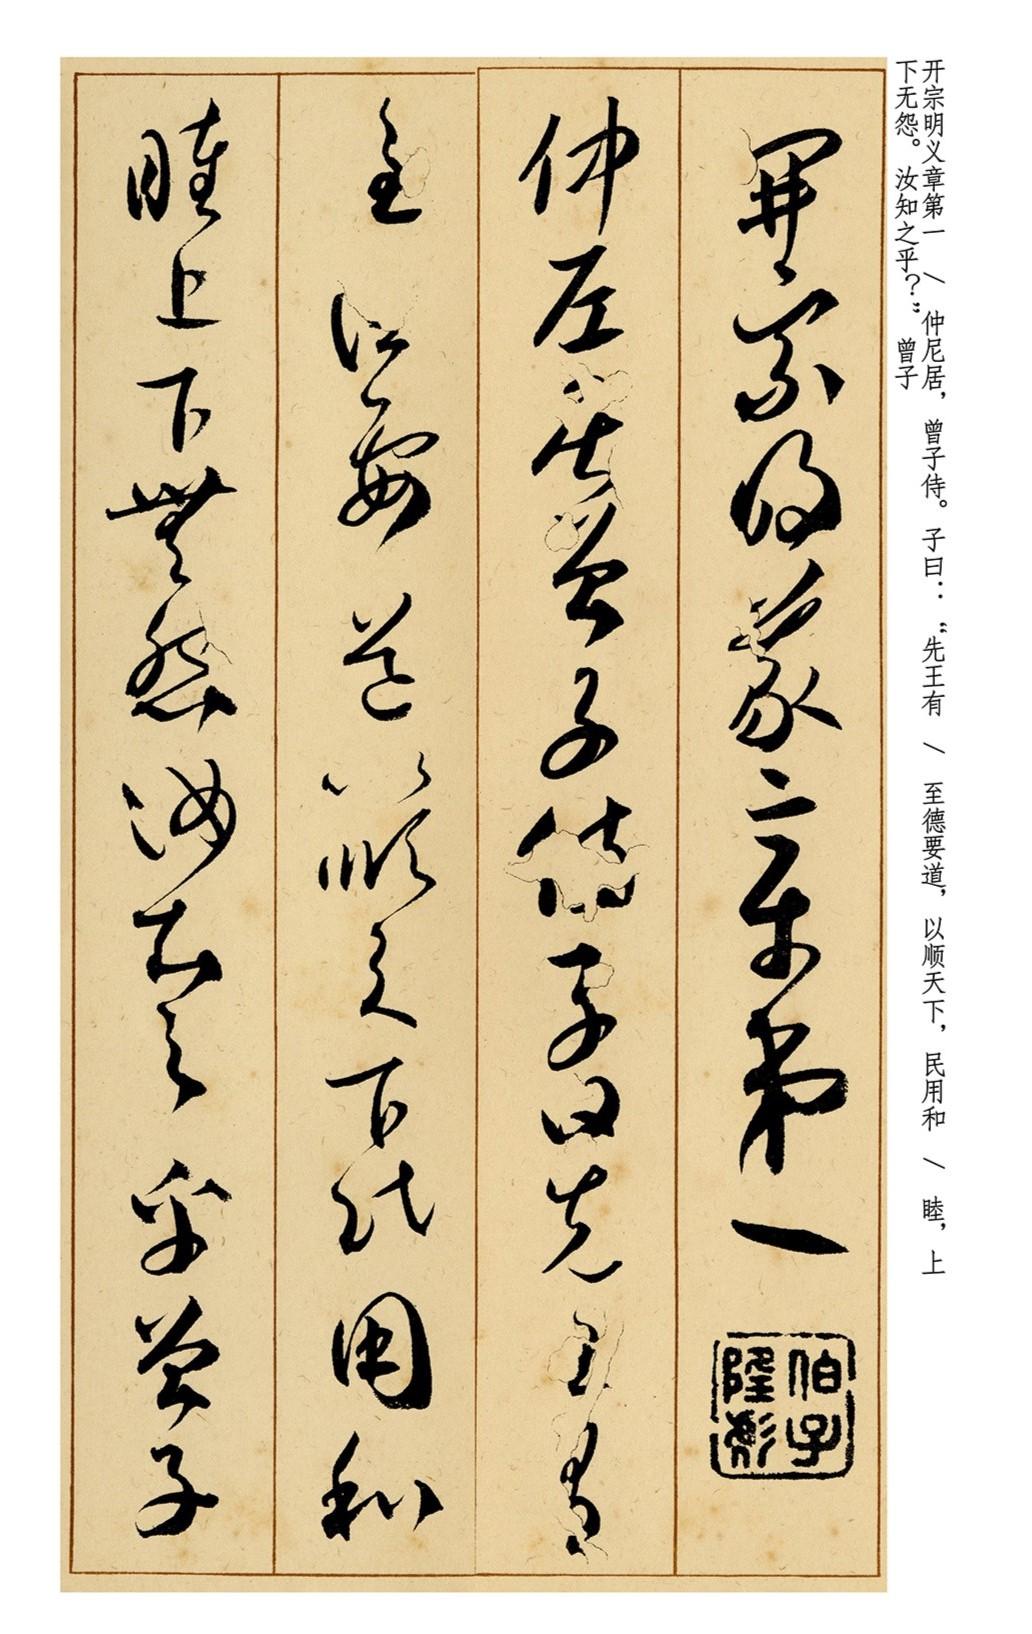 开宗明义章第一 / 仲尼居，曾子侍。子曰：“先王有 / 至德要道，以顺天下，民用和 / 睦，上
下无怨。汝知之乎？”曾子
開宗明義章第一
仲尼居曾子侍子曰先王有
至德要道以順天下民用和
睦上下無怨汝知之乎曾子